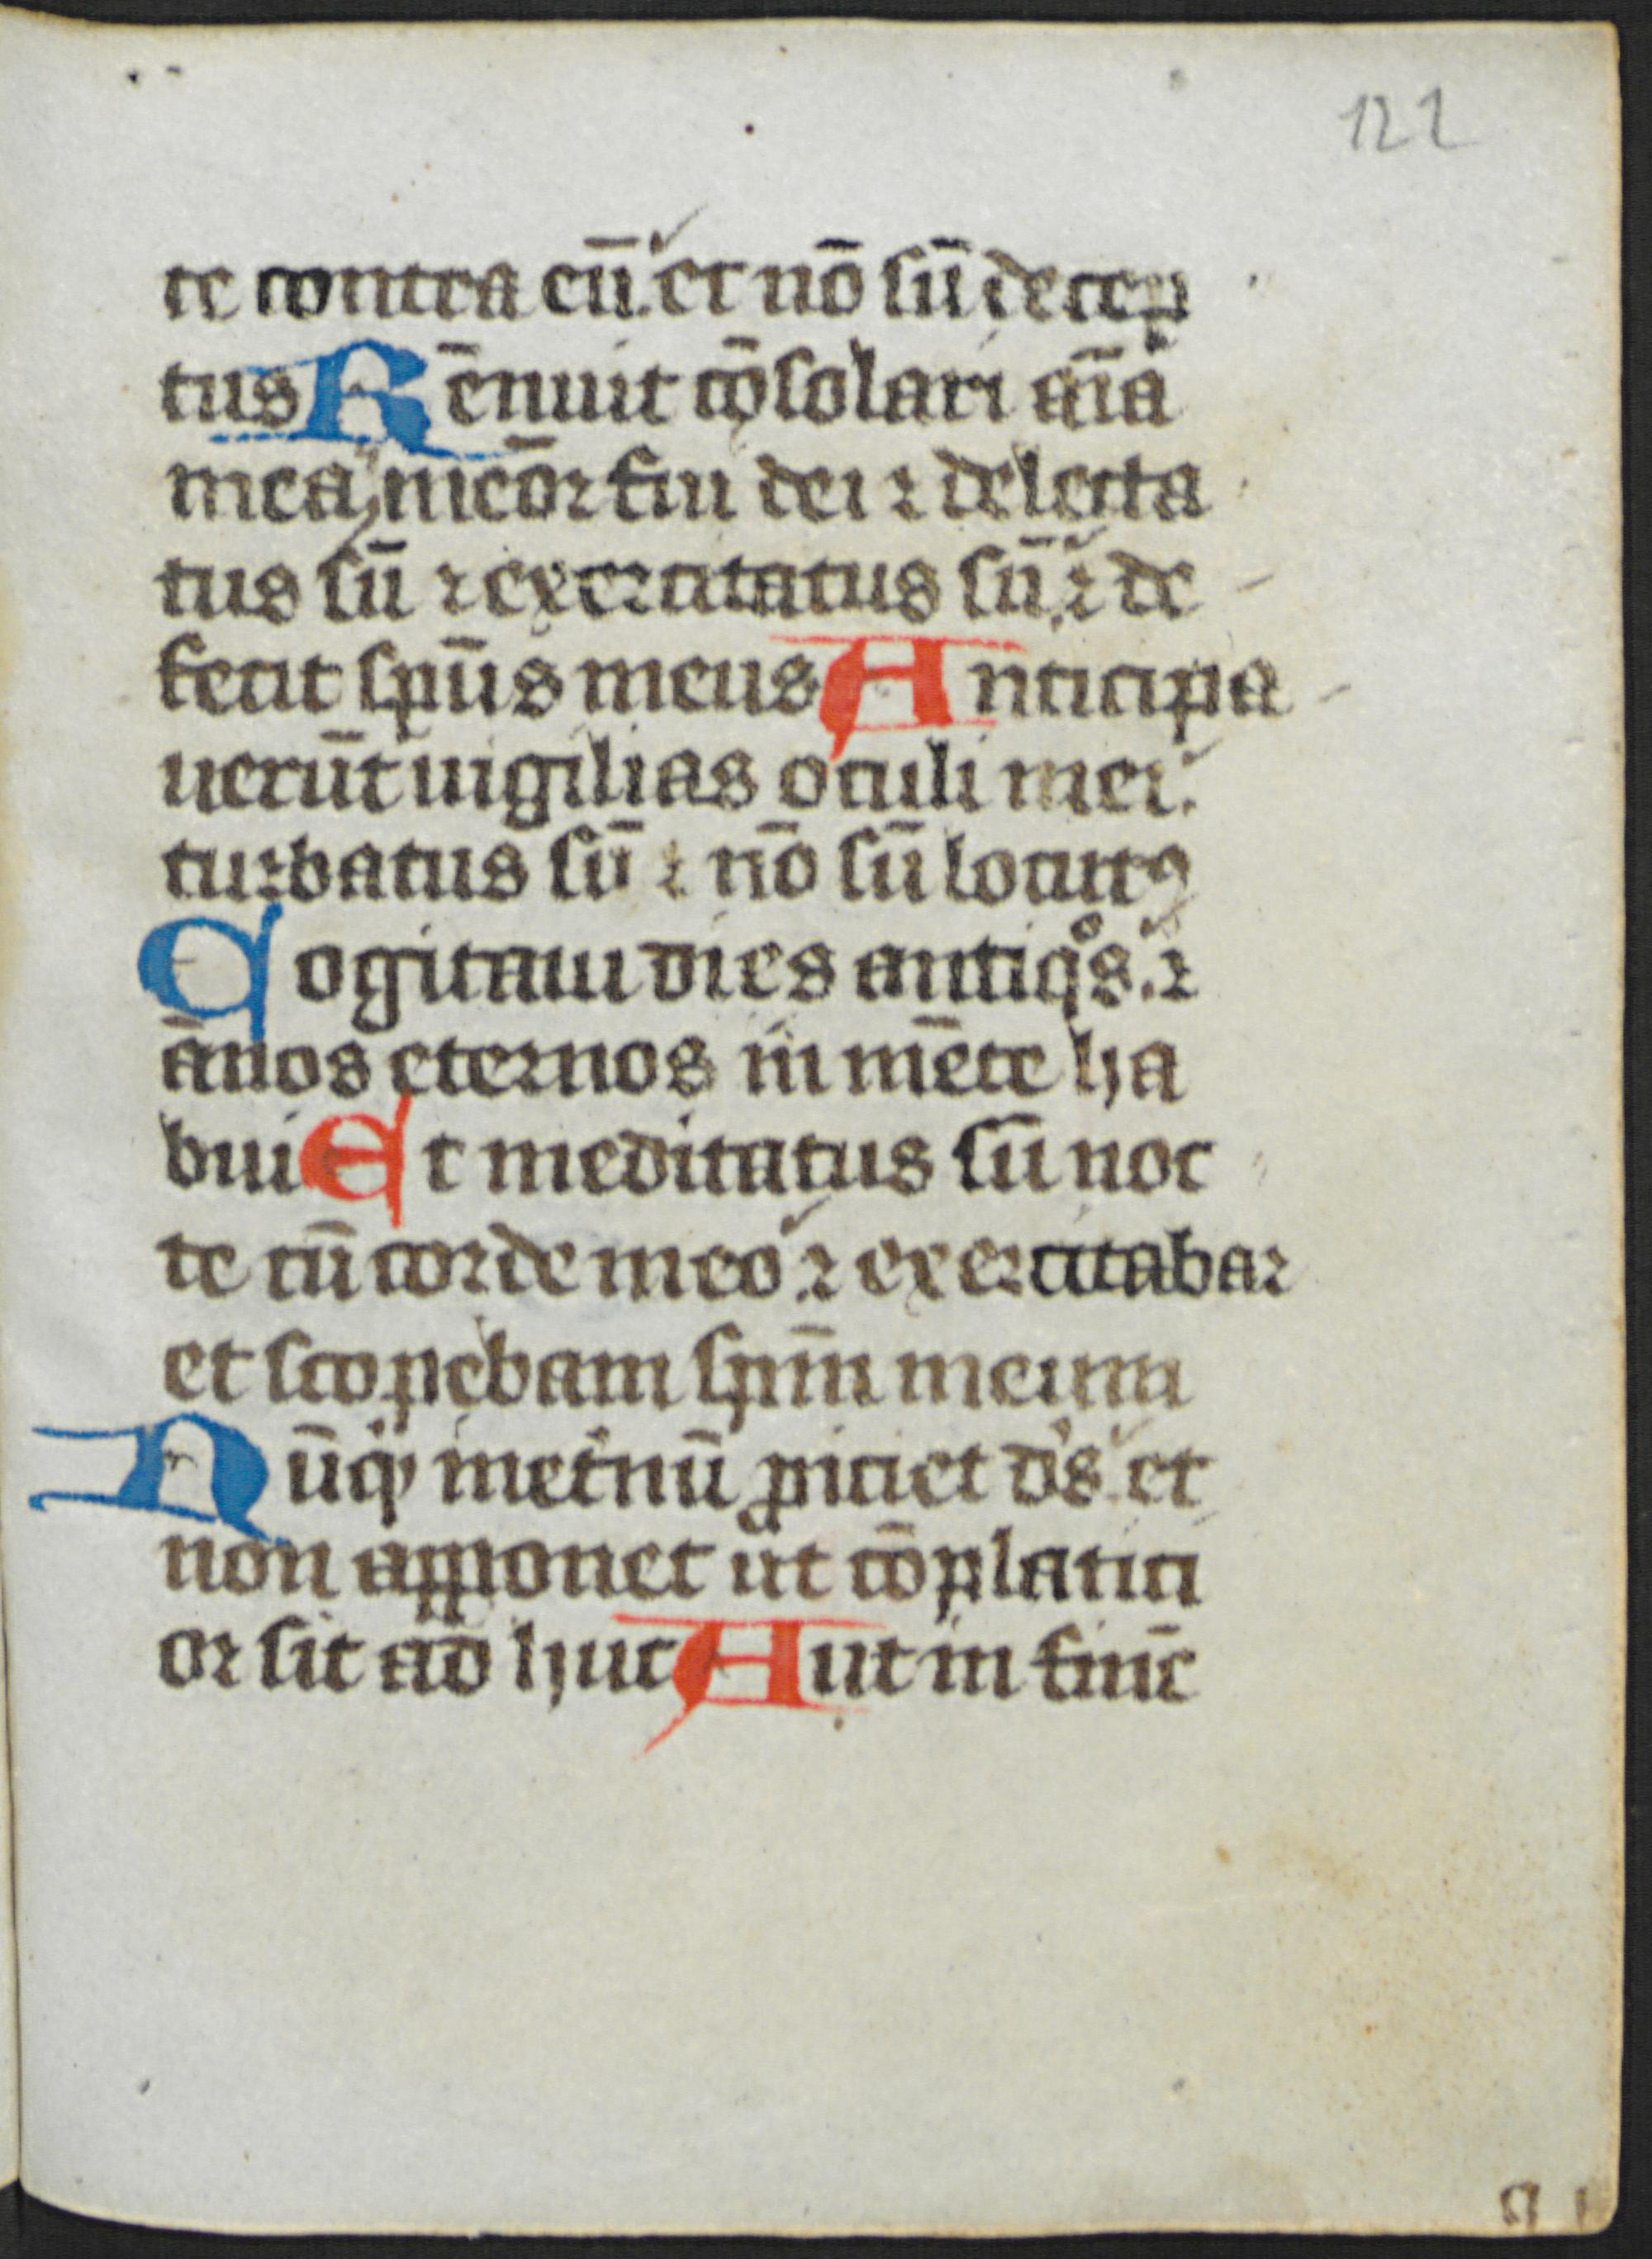 122
te contra eū. et nō sū decep
tus Rēnuit cōsolari aīa
mea, meōr fui dei ⁊ delecta
tus sū ⁊ exercitatus sū. ⁊ de
fecit spūs meus Anticipa
uerūt uigilias oculi mei.
turbatus sū ⁊ nō sū locutꝰ
Cogitaui dies antiqͦs. ⁊
ānos eternos in mēte ha
bui Et meditatus sū noc
te cū corde meo. ⁊ exercitabar
et scopebam spm̄ meum
Nūqͥd in et̄nū ꝓiciet ds̄. et
non apponet ut cōplaciti
or sit ad huc Aut in finē